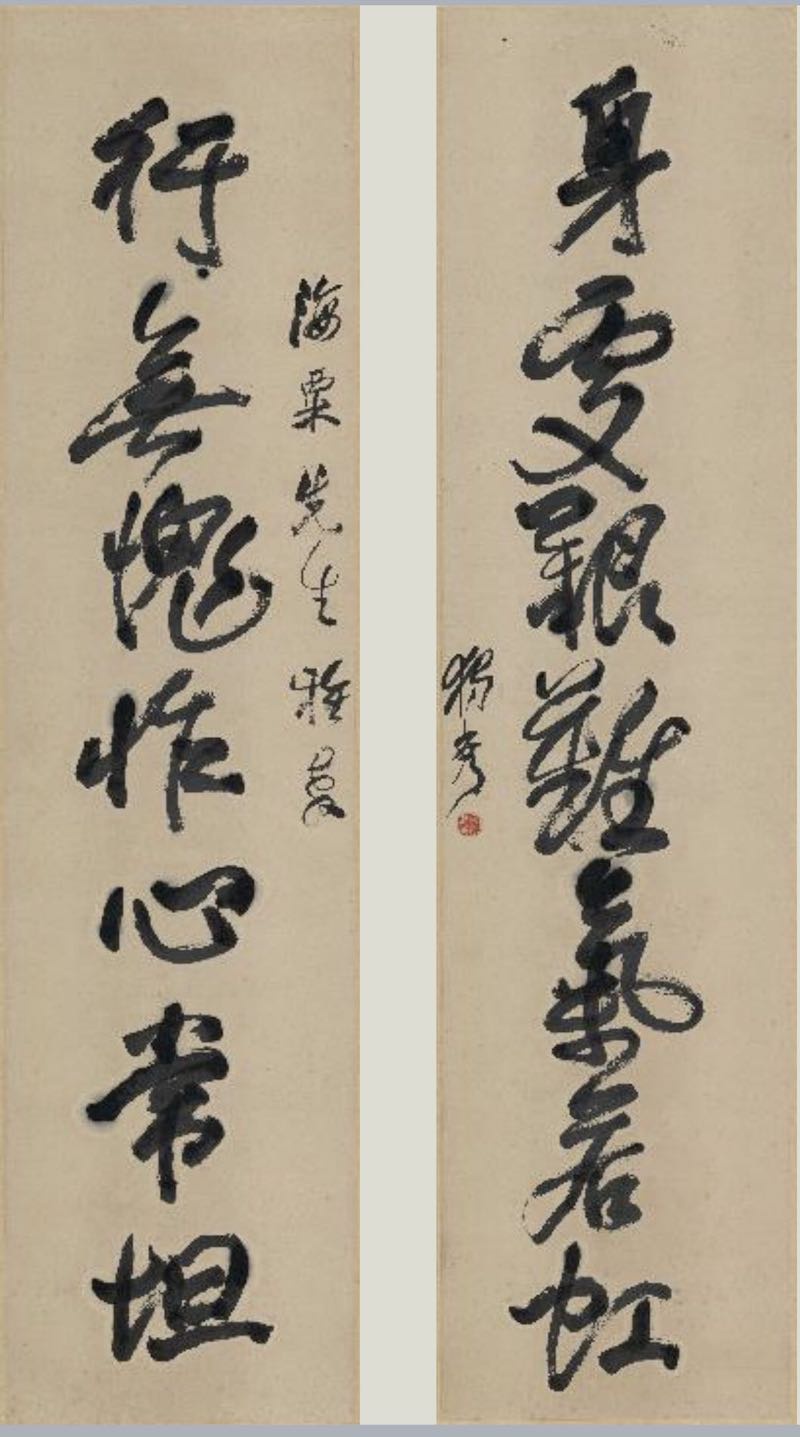 身處艱難氣若虹
獨秀
海粟先生雅
行無愧怍心常坦